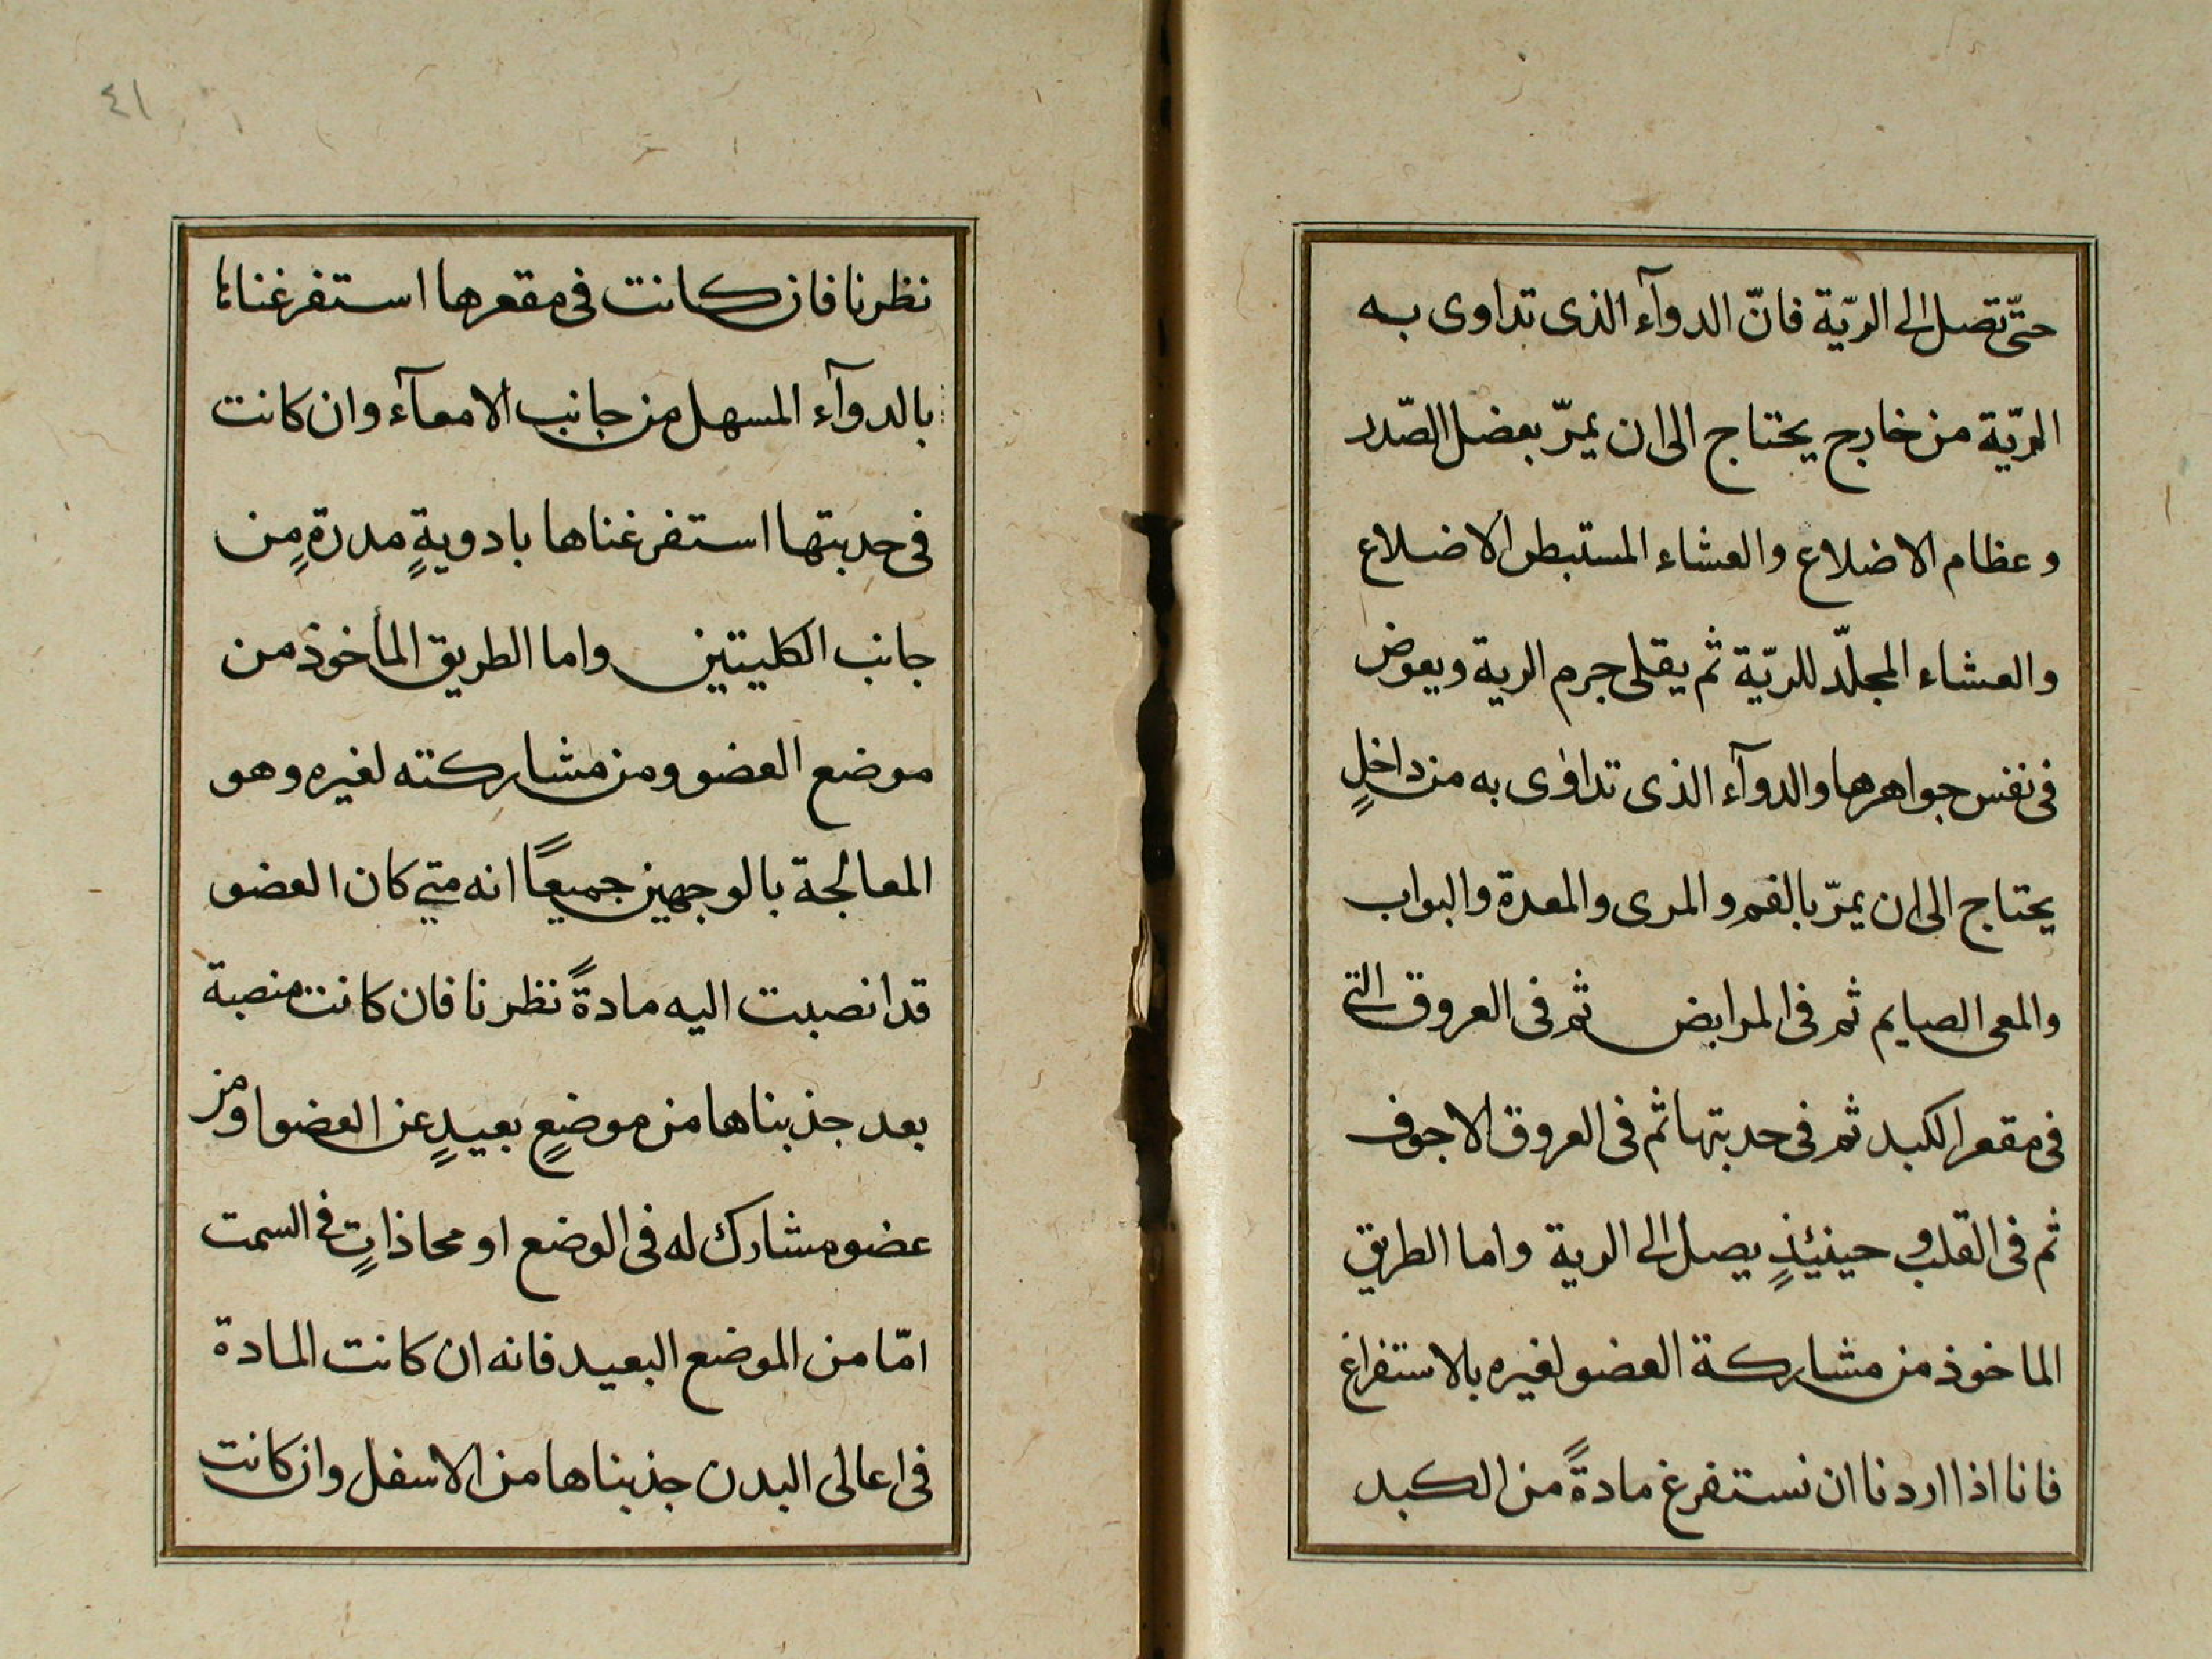 حتّى تصل الى الريّة فانّ الدوآء الذى تداوى به
الريّة من خارج يحتاج الى ان يمرّ بعضل الصّدر
وعظام الاضلاع والعشاء المستبطن الاضلاع
والعشاء المجلّد للريّة ثم يقلى جرم الرية ويعوض
فى نفس جواهرها والدوآء الذى تداوى به من داخلٍ
يحتاج الى ان يمرّ بالفم والمرى والمعدة والبواب
والمعى الصايم ثم فى المرابض ثم فى العروق التى
فى مقعر الكبد ثم فى حدبتها ثم فى العروق الاجوف
ثم فى القلب و حينئذٍ يصل الى الرية واما الطريق
الماخوذ من مشاركة العضو لغيره بالاستفراغ
فانا اذا اردنا ان نستفرغ مادةً من الكبد
٤١
نظرنا فان كانت فى مقعرها استفرغناها
بالدوآء المسهل من جانب الامعآء وان كانت
فى حدبتها استفرغناها بادويةٍ مدرةٍ من
جانب الكليتين واما الطريق المأخوذ من
موضع العضو ومن مشاركته لغيره وهو
المعالجة بالوجهين جميعًا انه متى كان العضو
قد انصبت اليه مادةً نظرنا فان كانت منصبة
بعد جذبناها من موضعٍ بعيدٍ عن العضو او من
عضو مشارك له فى الوضع او محاذاتٍ فى السمت
امّا من الموضع البعيد فانه ان كانت المادة
فى اعالى البدن جذبناها من الاسفل وان كانت